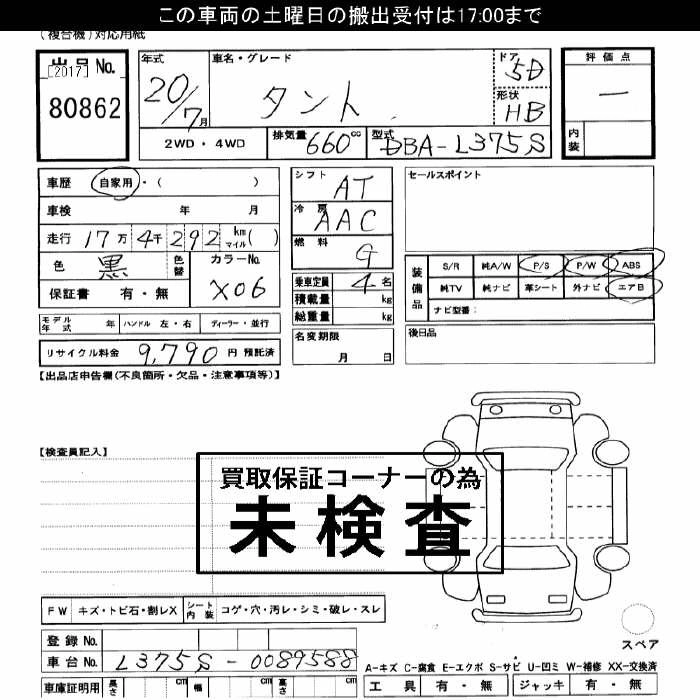 この車両の土曜日の搬出受付は17:00まで
(複合機)対応用紙
出品No. [2017]
80862
年式 20/7月
車名・グレード タント
ドア 5D
形状 HB
評価点 —
内装
2WD・4WD
排気量 660cc
型式 DBA-L375S
車歴 自家用・( )
車検 年 月
走行 17万4千292km マイル( )
色 黒 色替 カラーNo. X06
保証書 有・無
シフト AT
冷房 AAC
燃料 G
乗車定員 4名
積載量 kg
総重量 kg
セールスポイント
装備品
S/R 純A/W P/S P/W ABS
純TV 純ナビ 革シート 外ナビ エアB
ナビ型番:
モデル年式 年 ハンドル 左・右 ディーラー・並行
名変期限 月 日
後日品
リサイクル料金 9,790円 預託済
【出品店申告欄(不良箇所・欠品・注意事項等)】
【検査員記入】
買取保証コーナーの為
未検査
FW キズ・トビ石・割レX シート内装 コゲ・穴・汚レ・シミ・破レ・スレ
スペア
登録No.
車台No. L375S-0089588
A-キズ C-腐食 E-エクボ S-サビ U-凹ミ W-補修 XX-交換済
車庫証明用 長さ cm 幅 cm 高さ cm
工具 有・無 ジャッキ 有・無